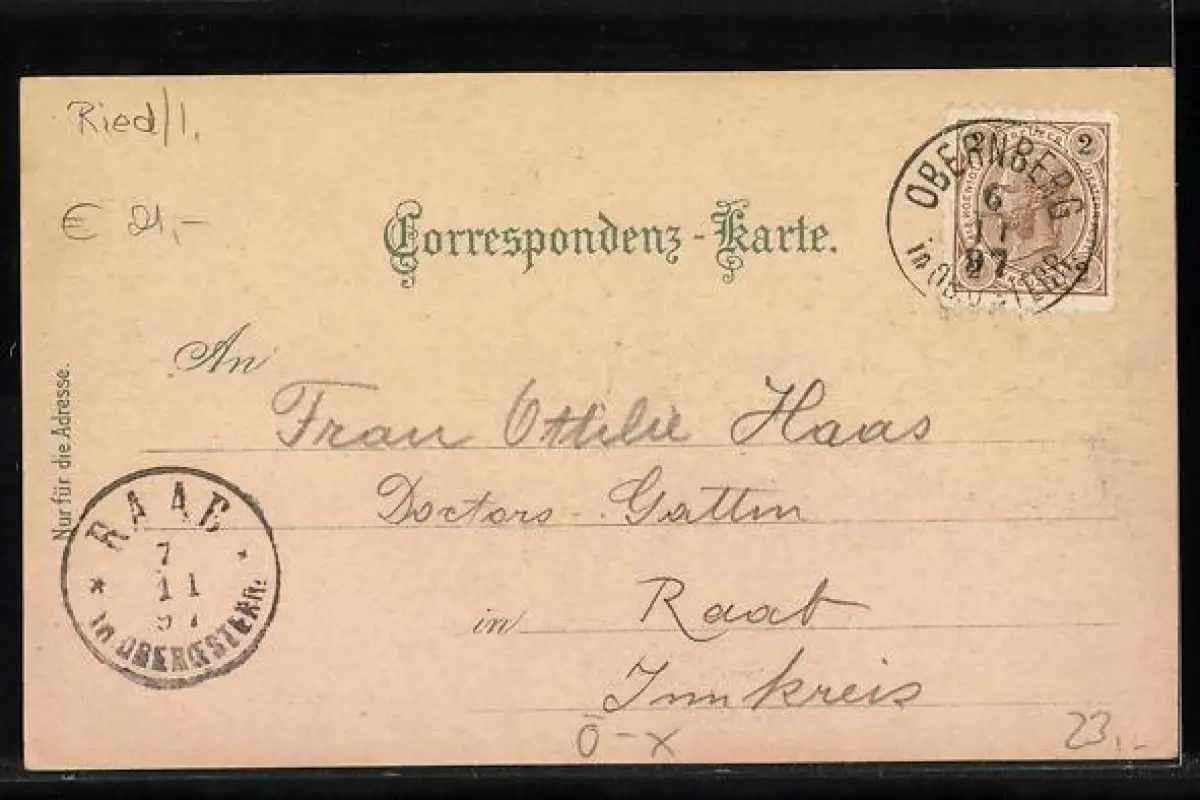 Ried/I.
€ 21,-
Correspondenz-Karte.
OBERNBERG
6
11
97
in OB.ÖSTERR.
2 2
2
An
Frau Ottilie Haas
Doctors-Gattin
in Raab
Innkreis
Nur für die Adresse.
RAAB
7
11
97
in OBEROESTERR.
Ö-X
23,-